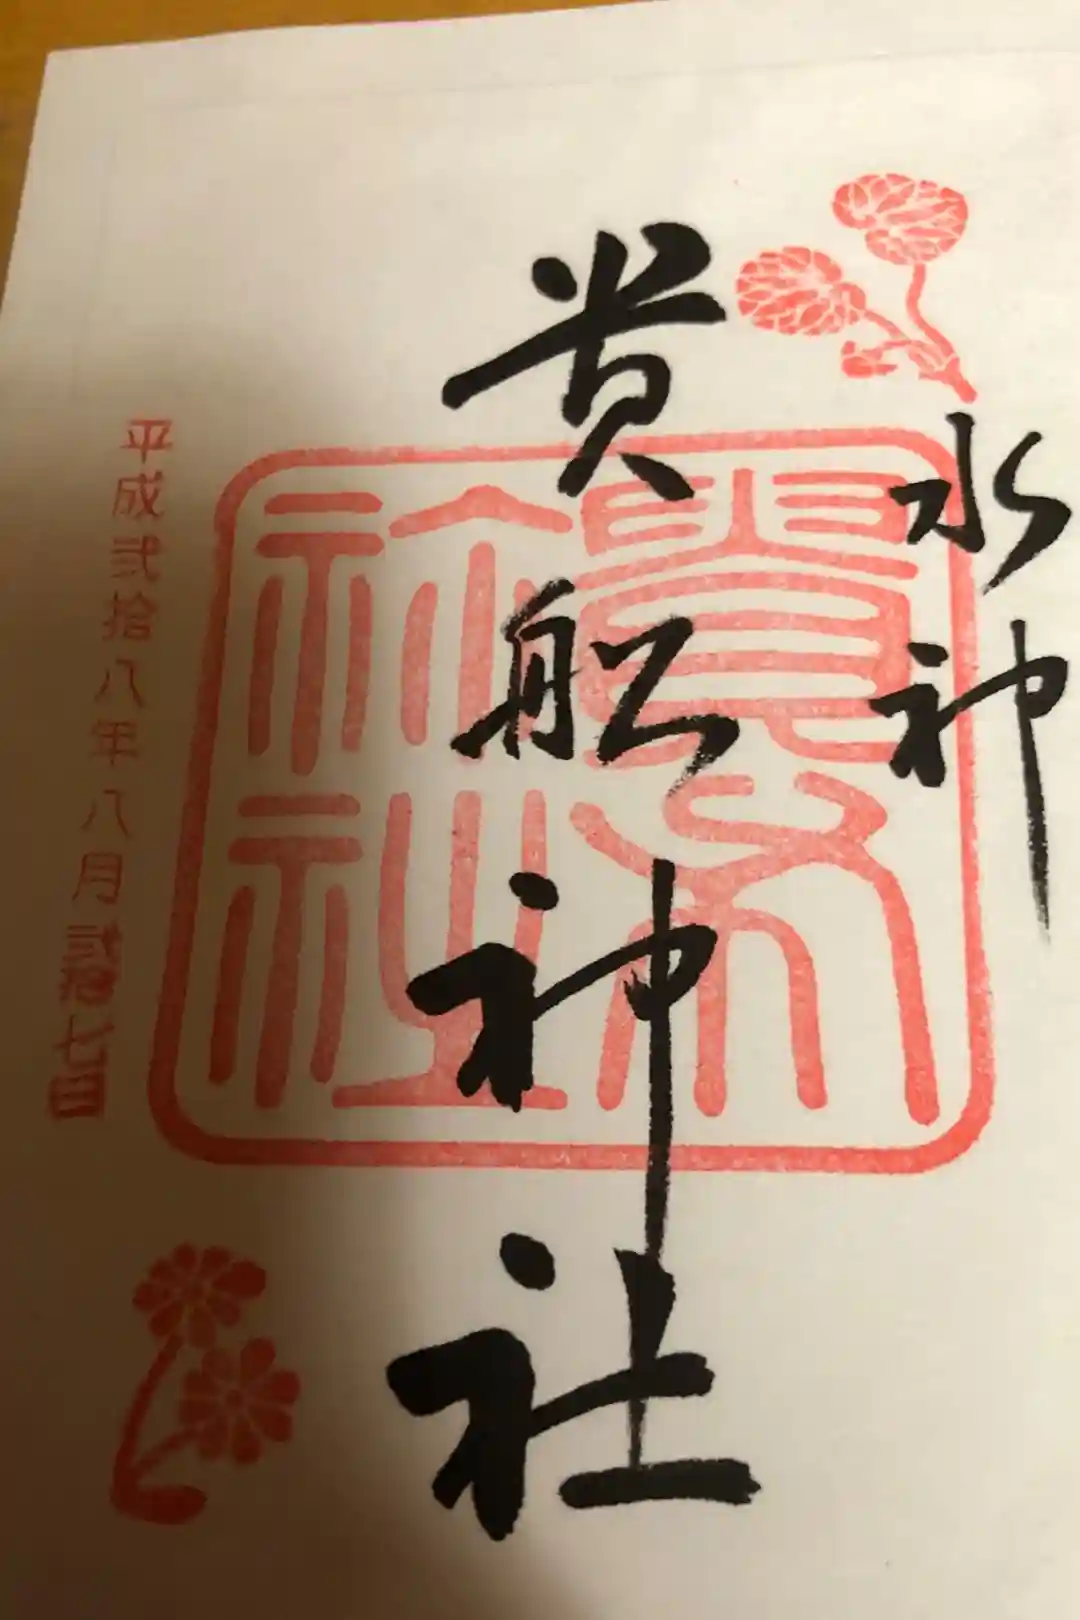 水神
貴船神社
貴布
祢社
平成弐拾八年八月弐拾七日